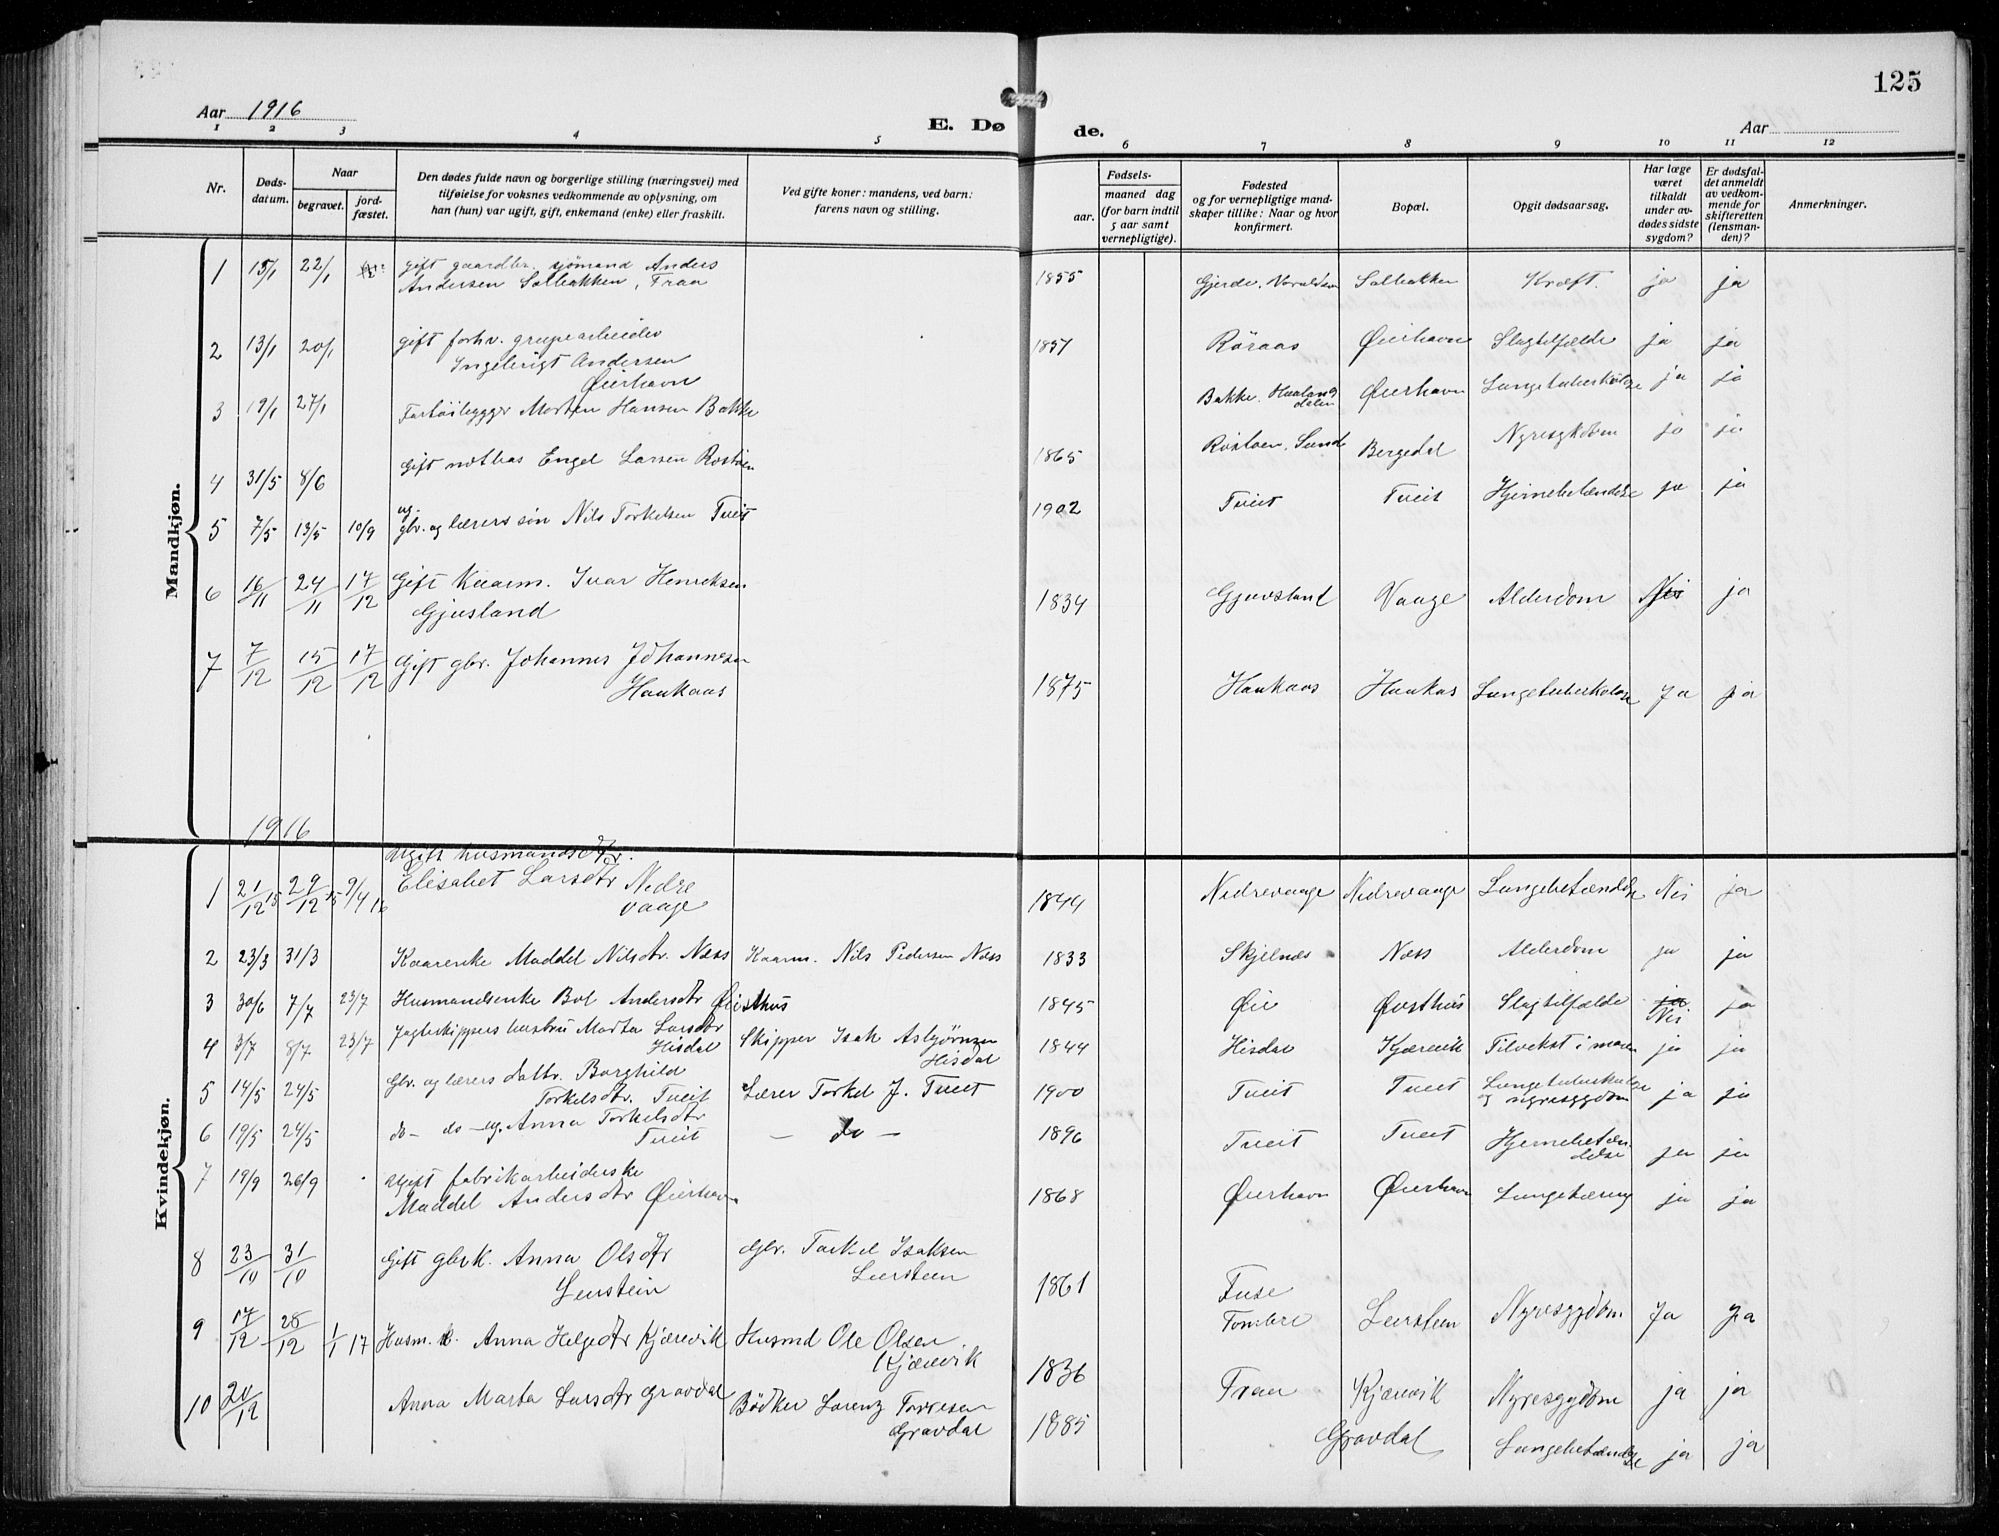 125
Aar 1916
E. Døde.
Aar
1 2 3 4 5 6 7 8 9 10 11 12
Nr.
Døds-
datum.
Naar
begravet.
jord-
fæstet.
Den dødes fulde navn og borgerlige stilling (næringsvei) med
tilføielse for voksnes vedkommende av oplysning, om
han (hun) var ugift, gift, enkemand (enke) eller fraskilt.
Ved gifte koner: mandens, ved barn:
farens navn og stilling.
Fødsels-
aar.
maaned dag
(for barn indtil
5 aar samt
vernepligtige).
Fødested
og for vernepligtige mand-
skaper tillike: Naar og hvor
konfirmert.
Bopæl.
Opgit dødsaarsag.
Har læge
været
tilkaldt
under av-
dødes sidste
sygdom?
Er dødsfal-
det anmeldt
av vedkom-
mende for
skifteretten
(lensman-
den)?
Anmerkninger.
Mandkjøn.
1 15/1 22/1 gift gaardbr. sjömand Anders
Andersen Solbakken, Fraa 1855 Gjerde, Solbakken Kræft. ja ja
2 13/1 20/1 gift forhv. grupearbeider
Ingebrigt Andersen
Øierhavn 1857 Röraas Øierhavn Slagtilfælde ja ja
3 19/1 27/1 Morten Hansen Bakke Bakke, Haalands
dalen Øierhavn Lungetuberkulose ja ja
4 31/5 8/6 Gift Engel Larsen Rostøen 1865 Rostøen, Sund Bergedal Nyresygdom ja ja
5 7/5 13/5 10/9 ug.
gbr. og lærers sön Nils Torkelsen Tveit 1902 Tveit Tveit Hjernebetændelse ja ja
6 16/11 24/11 17/12 Gift Kaarm. Ivar Henriksen
Gjøvsland 1834 Gjøvsland Vaage Alderdom Nei ja
7 7/12 15/12 17/12 Gift gbr. Johannes Johannesen
Haukaas 1875 Haukaas Haukas Lungetuberkulose Ja ja
1916
Kvindekjøn.
1 21/12 15 29/12 15 9/4 16 Ugift husmandsdtr.
Elisabet Larsdtr Nedre
vaage 1844 Nedrevaage Nedrevaage Lungebetændelse Nei ja
2 23/3 31/3 Kaarenke Maddel Nilsdtr. Næss Kaarm. Nils Pedersen Næss 1833 Skjelnæs Næss Alderdom ja ja
3 30/6 7/7 23/7 Husmandsenke Bol Andersdtr Øvsthus 1845 Øie Øvsthus Slagtilfælde ja
Nei ja
4 3/7 8/7 23/7 Jagteskippers hustru Marta Larsdtr
Hisdal Skipper Isak Asbjörnsen
Hisdal 1844 Hisdal Kjærevik Tilvekst i maven ja ja
5 14/5 24/5 Gbr. og lærers dattr. Borghild
Torkelsdtr. Tveit Lærer Torkel J. Tveit 1900 Tveit Tveit Lungetuberkulose
og nyresygdom ja ja
6 19/5 24/5 do - do - ug. Anna Torkelsdtr
Tveit - do - 1896 Tveit Tveit Hjernebetæn-
delse ja ja
7 19/9 26/9 Ugift fabrikarbeiderske
Maddel Andersdtr Øierhavn 1868 Øierhavn Øierhavn Lungetæring ja ja
8 23/10 31/10 Gift gbrk. Anna Olsdtr
Leirstein Gbr. Torkel Isaksen
Leirsteen 1861 Fuse
Tombre Leirsteen Nyresygdom Ja ja
9 17/12 28/12 1/1 17 Husm. k. Anna Helgedtr Kjærevik Husmd Ole Olsen
Kjærevik 1836 Fraa Kjærevik Nyresygdom ja ja
10 20/12 Anna Marta Larsdtr Gravdal Bödker Lorenz Torresen
Gravdal 1885 Gravdal Lungebetændelse ja ja